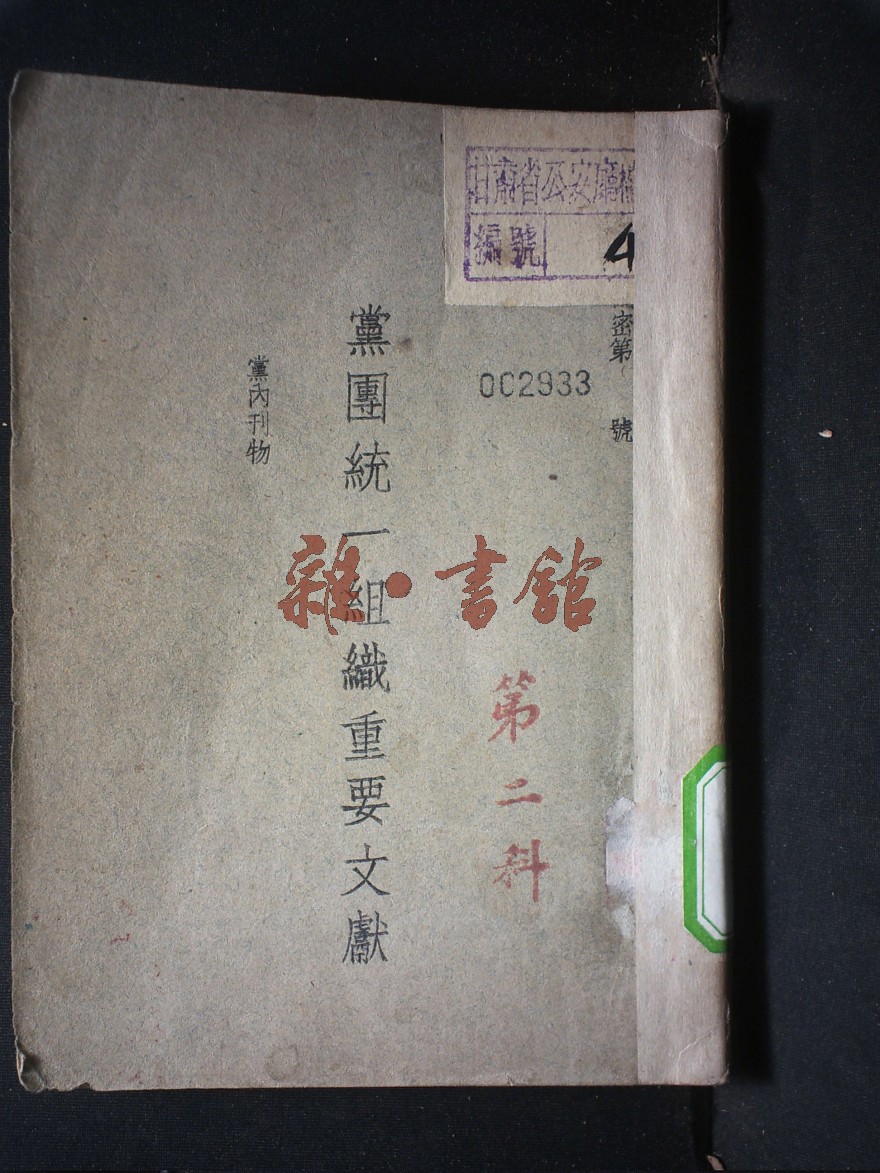 甘肅省公安廳
編號 4
密第 號
002933
第二科
黨團統一組織重要文獻
黨內刊物
雜·書館